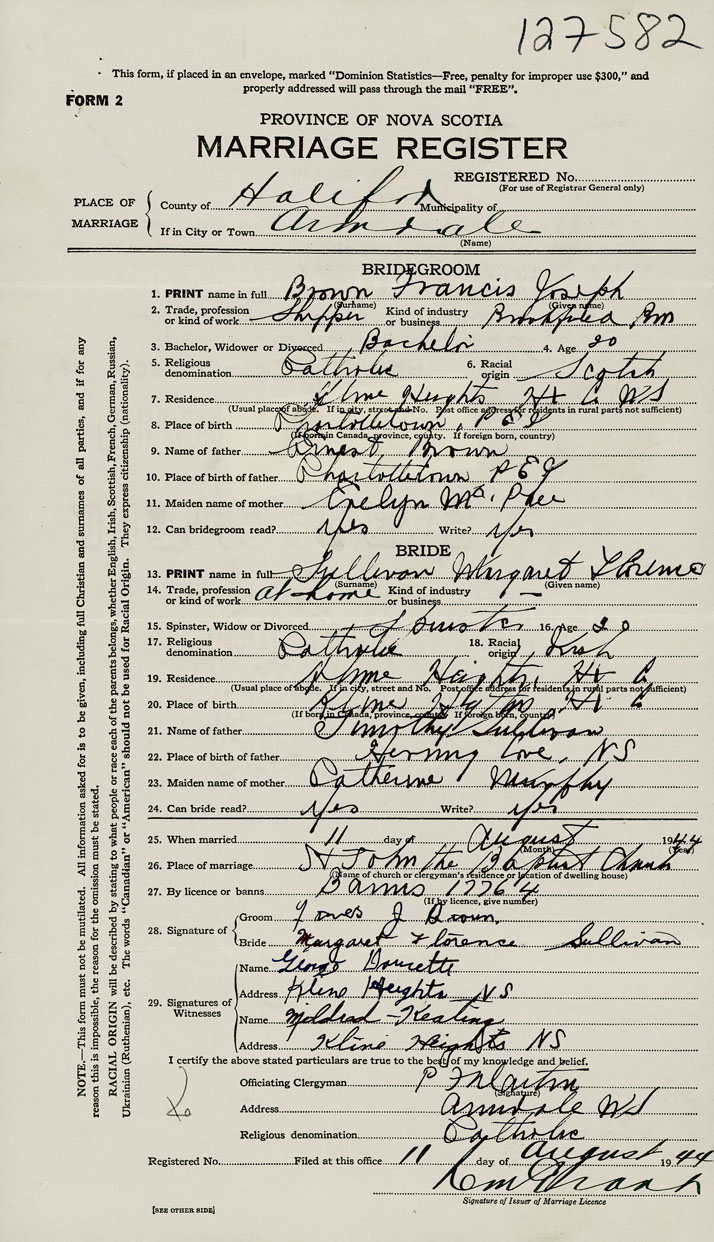 127582
This form, if placed in an envelope, marked "Dominion Statistics—Free, penalty for improper use $300," and
properly addressed will pass through the mail "FREE".
FORM 2
PROVINCE OF NOVA SCOTIA
MARRIAGE REGISTER
REGISTERED No.
(For use of Registrar General only)
PLACE OF MARRIAGE
County of Halifax Municipality of
If in City or Town Armdale
(Name)
BRIDEGROOM
1. PRINT name in full Brown Francis Joseph
(Surname) (Given name)
2. Trade, profession or kind of work Shipper Kind of industry or business Brookfield
3. Bachelor, Widower or Divorced Bachelor 4. Age 20
5. Religious denomination Catholic 6. Racial origin Scotch
7. Residence Heights NS
(Usual place of abode. If in city, street and No. Post office address for residents in rural parts not sufficient)
8. Place of birth Charlottetown, P E I
(If born in Canada, province, county. If foreign born, country)
9. Name of father Ernest Brown
10. Place of birth of father Charlottetown P E I
11. Maiden name of mother Evelyn
12. Can bridegroom read? yes Write? yes
BRIDE
13. PRINT name in full Sullivan Margaret Florence
(Surname) (Given name)
14. Trade, profession or kind of work at home Kind of industry or business —
15. Spinster, Widow or Divorced Spinster 16. Age 20
17. Religious denomination Catholic 18. Racial origin Irish
19. Residence Heights, Hx
(Usual place of abode. If in city, street and No. Post office address for residents in rural parts not sufficient)
20. Place of birth
(If born in Canada, province, county. If foreign born, country)
21. Name of father Timothy Sullivan
22. Place of birth of father Herring Cove, NS
23. Maiden name of mother Catherine Murphy
24. Can bride read? Yes Write? yes
25. When married 11 day of August 1944
(Month) (Year)
26. Place of marriage St John the Baptist Church
(Name of church or clergyman's residence or location of dwelling house)
27. By licence or banns Banns 17764
(If by licence, give number)
28. Signature of
Groom J Brown
Bride Margaret Florence Sullivan
29. Signatures of Witnesses
Name George Doucette
Address Kline Heights NS
Name Mildred Keating
Address Kline Heights NS
I certify the above stated particulars are true to the best of my knowledge and belief.
Officiating Clergyman
(Signature)
Address Armdale NS
Religious denomination Catholic
Registered No. Filed at this office 11 day of August 1944
Signature of Issuer of Marriage Licence
[SEE OTHER SIDE]
NOTE.—This form must not be mutilated. All information asked for is to be given, including full Christian and surnames of all parties, and if for any
reason this is impossible, the reason for the omission must be stated.
RACIAL ORIGIN will be described by stating to what people or race each of the parents belongs, whether English, Irish, Scottish, French, German, Russian,
Ukrainian (Ruthenian), etc. The words "Canadian" or "American" should not be used for Racial Origin. They express citizenship (nationality).